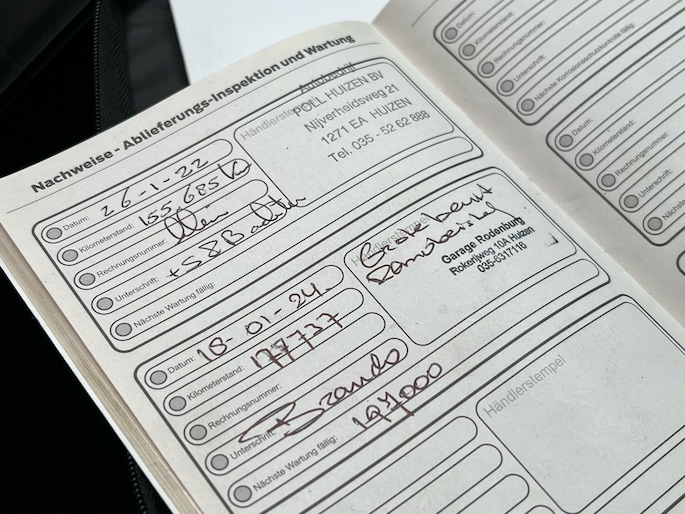 Nachweise - Ablieferungs-Inspektion und Wartung
Datum: 26-1-22
Kilometerstand: 155.685 km
Rechnungsnummer:
Unterschrift:
Nächste Wartung fällig:
Händlerstempel
Autobedrijf
POLL HUIZEN BV
Nijverheidsweg 21
1271 EA HUIZEN
Tel. 035 - 52 62 888
Datum: 18-01-24
Kilometerstand: 177737
Rechnungsnummer:
Unterschrift: Brands
Nächste Wartung fällig: 197000
Händlerstempel
Grote beurt
Garage Rodenburg
Rokerijweg 10A Huizen
035-6317116
Händlerstempel
Datum:
Kilometerstand:
Rechnungsnummer:
Unterschrift:
Nächste Korrosionsschutzkontrolle fällig:
Datum:
Kilometerstand:
Rechnungsnummer:
Unterschrift:
Nächste